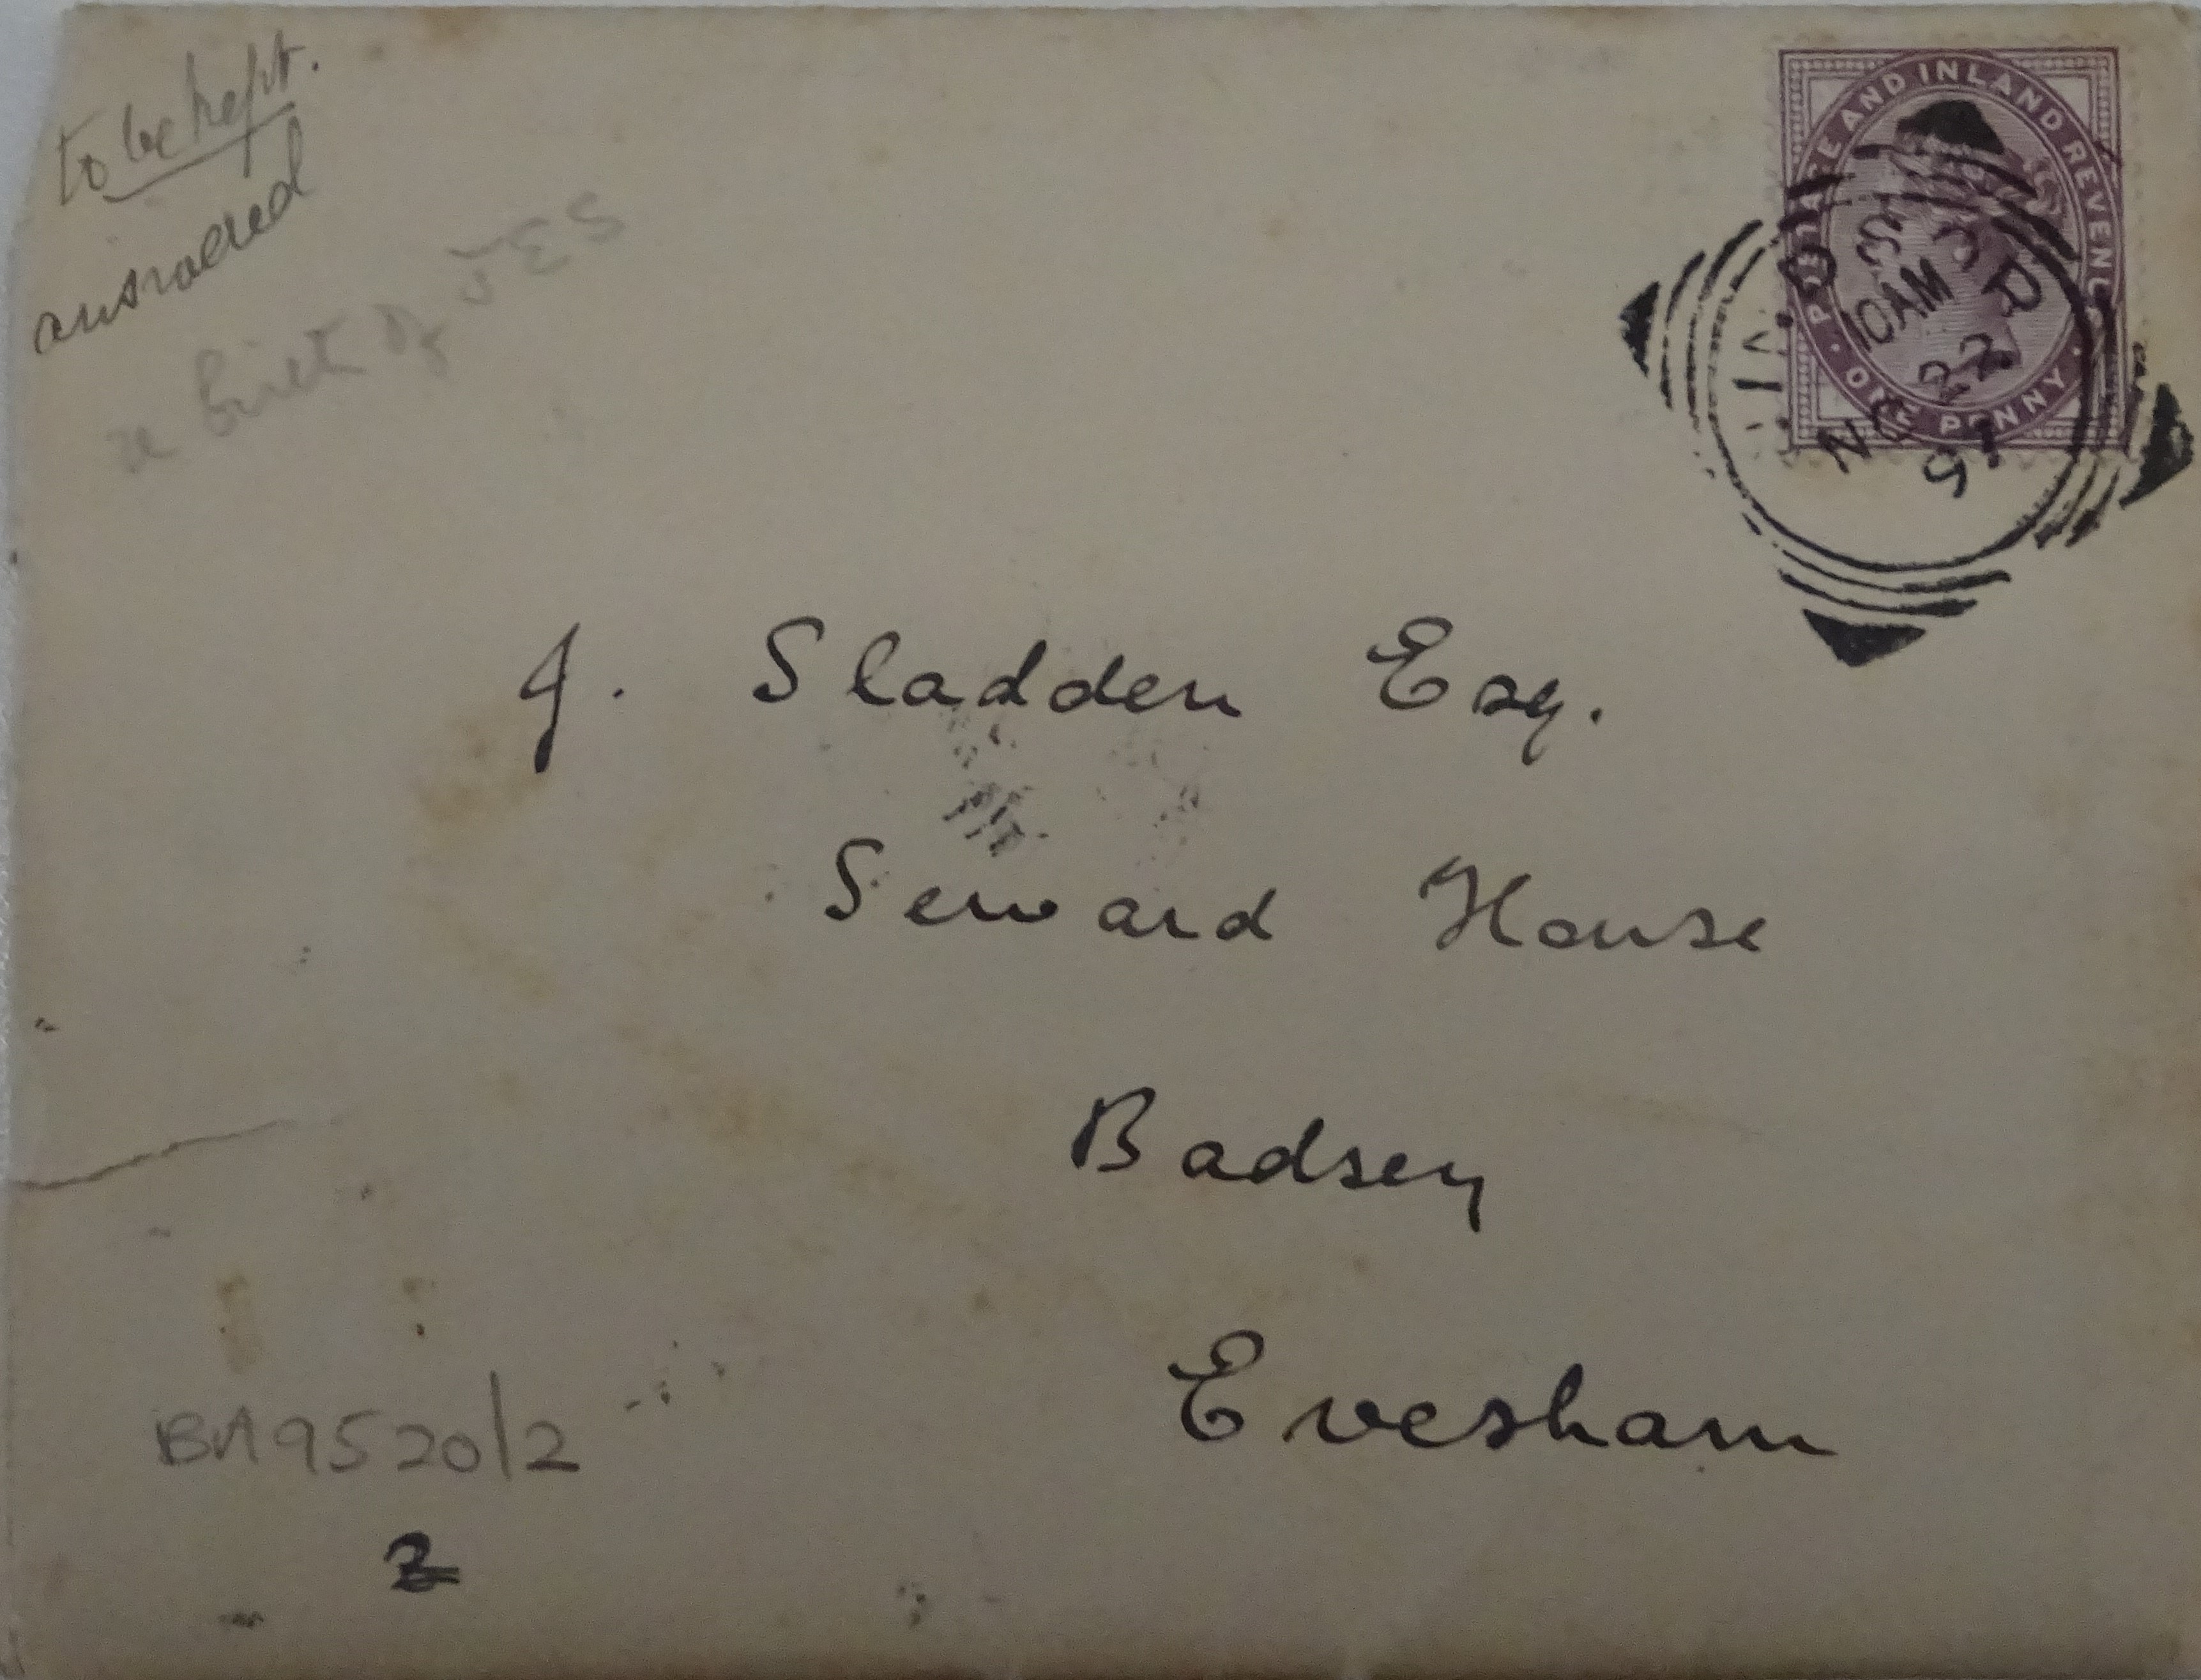 to be kept.
answered
re birth of JES
POSTAGE AND INLAND REVENUE
ONE PENNY
10AM
22
97
J. Sladden Esq.
Seward House
Badsey
Evesham
BA9520/2
2